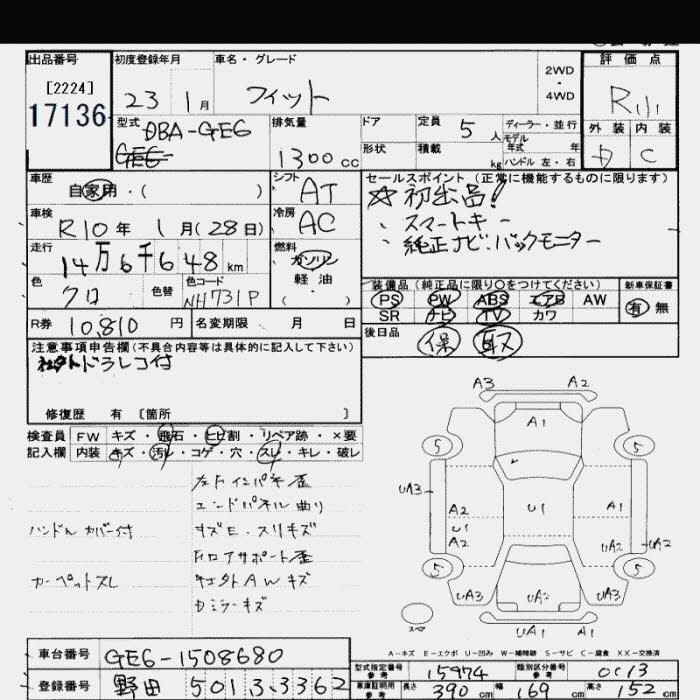 出品番号 初度登録年月 車名・グレード 評価点
[2224]
17136
23 1月 フィット
2WD
・
4WD
R
外装 内装
C
型式 DBA-GE6
GE6
排気量 1300cc
ドア 定員 5人 ディーラー・並行
形状 積載 kg
モデル年式 年
ハンドル 左・右
車歴 自家用・( )
シフト AT
セールスポイント (正常に機能するものに限ります)
☆初出品!
・スマートキー
・純正ナビ・バックモニター
車検 R10年 1月(28日)
冷房 AC
走行 14万6千648km
燃料 ガソリン
軽油
( )
色 クロ 色替 色コード NH731P
装備品 (純正品に限り○をつけてください) 新車保証書
PS PW ABS エアB AW
SR ナビ TV カワ
有 無
R券 10.810円 名変期限 月 日
後日品 保 取
注意事項申告欄 (不具合内容等は具体的に記入して下さい)
社外ドラレコ付
修復歴 有 〔箇所 〕
検査員 FW キズ・飛石・ヒビ割・リペア跡・×要
記入欄 内装 キズ・汚レ・コゲ・穴・スレ・キレ・破レ
エンドパネル曲り
ハンドルカバー付
Fロアサポート歪
カーペットスレ 社外AWキズ
ミラーキズ
A3 A2
A1
5 5
UA3 A2 U1 A1
U1
A2 UA2 UA2
5 5
UA3 UA2 UA3
スペア UA1 A1
A-キズ E-エクボ U-凹み W-補修跡 S-サビ C-腐食 XX-交換済
車台番号 GE6-1508680
登録番号 野田 501 3 3362
型式指定番号 参考 15974 類別区分番号 参考 0013
車庫証明用 参考 長さ 390cm 幅 169cm 高さ 152cm